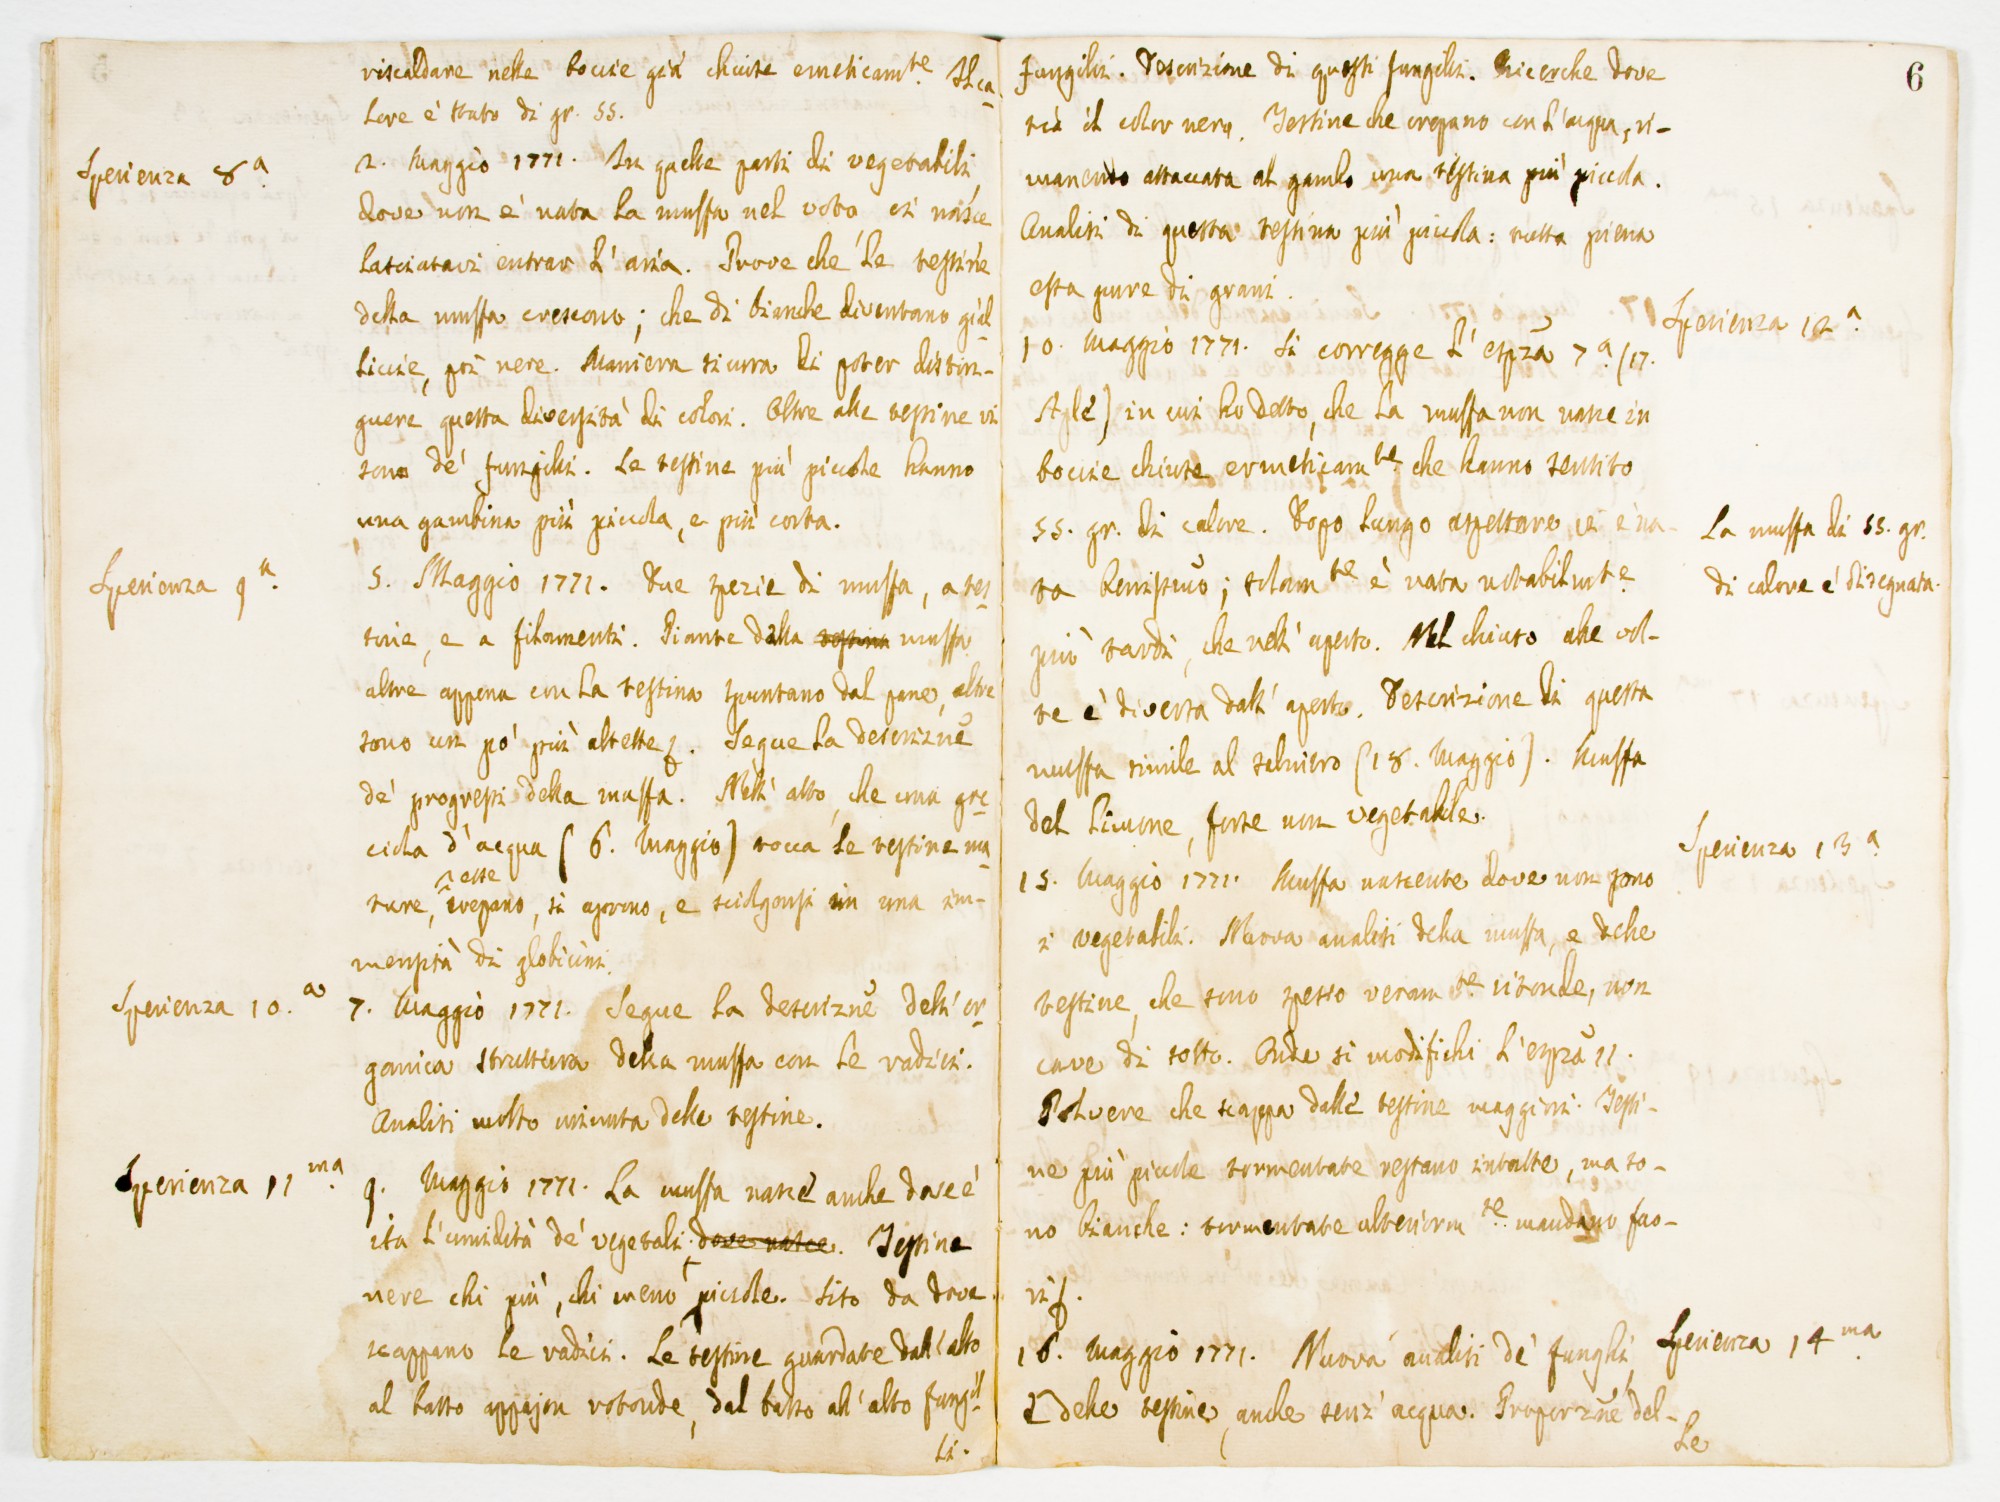 riscaldare nelle boccie già chiuse emeticamte. Il ca-
lore è stato di gr. 55.
Sperienza 8a.
2. Maggio 1771. In quelle parti di vegetabili,
dove non è nata la muffa nel voto ci nasce
lasciatavi entrar l'aria. Prove che le testine
della muffa crescono; che di bianche diventano gial-
liccie, poi nere. Maniera sicura di poter distin-
guere questa diversità di colori. Oltre alle testine vi
sono de' funghilli. Le testine più piccole hanno
una gambina più piccola, e più corta.
Sperienza 9a.
5. Maggio 1771. Due spezie di muffa, a tes-
tine, e a filamenti. Piante della testina muffa
altre appena con la testina spuntano dal pane, altre
sono un po' più altette. Segue la descrizne
de' progressi della muffa. Nell' atto, che una goc-
ciola d'acqua (6. Maggio) tocca le testine ma-
ture, esse crepano, si aprono, e sciolgonsi in una im-
mensità di globicini.
Sperienza 10.a
7. Maggio 1771. Segue la descrizne dell' or-
ganica struttura della muffa con le radici.
Analisi molto minuta delle testine.
Sperienza 11ma.
9. Maggio 1771. La muffa nasce anche dove è
ita l'umidità de' vegetali dove nasce. Testine
nere chi più, chi meno piccole. Sito da dove
scappano le radici. Le testine guardate dall' alto
al basso appajon rotonde, dal basso all' alto fungil-
li.
6
fungilli. Descrizione di questi fungilli. Ricerche dove
stia il color nero. Testine che crepano con l'acqua, ri-
manendo attaccata al gambo una testina più piccola.
Analisi di questa testina più piccola: tutta piena
essa pure di grani.
Sperienza 12a.
10. Maggio 1771. Si corregge l' espza 7a. (17.
Aple) in cui ho detto, che la muffa non nasce in
boccie chiuse ermeticamte. che hanno sentito
55. gr. di calore. Dopo lungo aspettare ci è na-
La muffa di 55. gr.
di calore è disegnata.
ta benissmo; solamte è nata notabilmte
più tardi, che nell' aperto. Nel chiuso alle vol-
te è diversa dall' aperto. Descrizione di questa
muffa simile al salnitro (18. Maggio). Muffa
del limone, forse non vegetabile.
Sperienza 13a.
15. Maggio 1771. Muffa nascente dove non sono
i vegetabili. Nuova analisi della muffa, e delle
testine, che sono spesso veramte. ritonde, non
cave di sotto. Onde si modifichi l'espza 11.
Polvere che scappa dalle testine maggiori. Testi-
ne più piccole tormentate restano intatte, ma so-
no bianche: tormentate ulteriormte. mandano fuo-
ri
Sperienza 14ma.
16. Maggio 1771. Nuova analisi de' funghi
e delle testine, anche senz' acqua. Proporzne del-
le